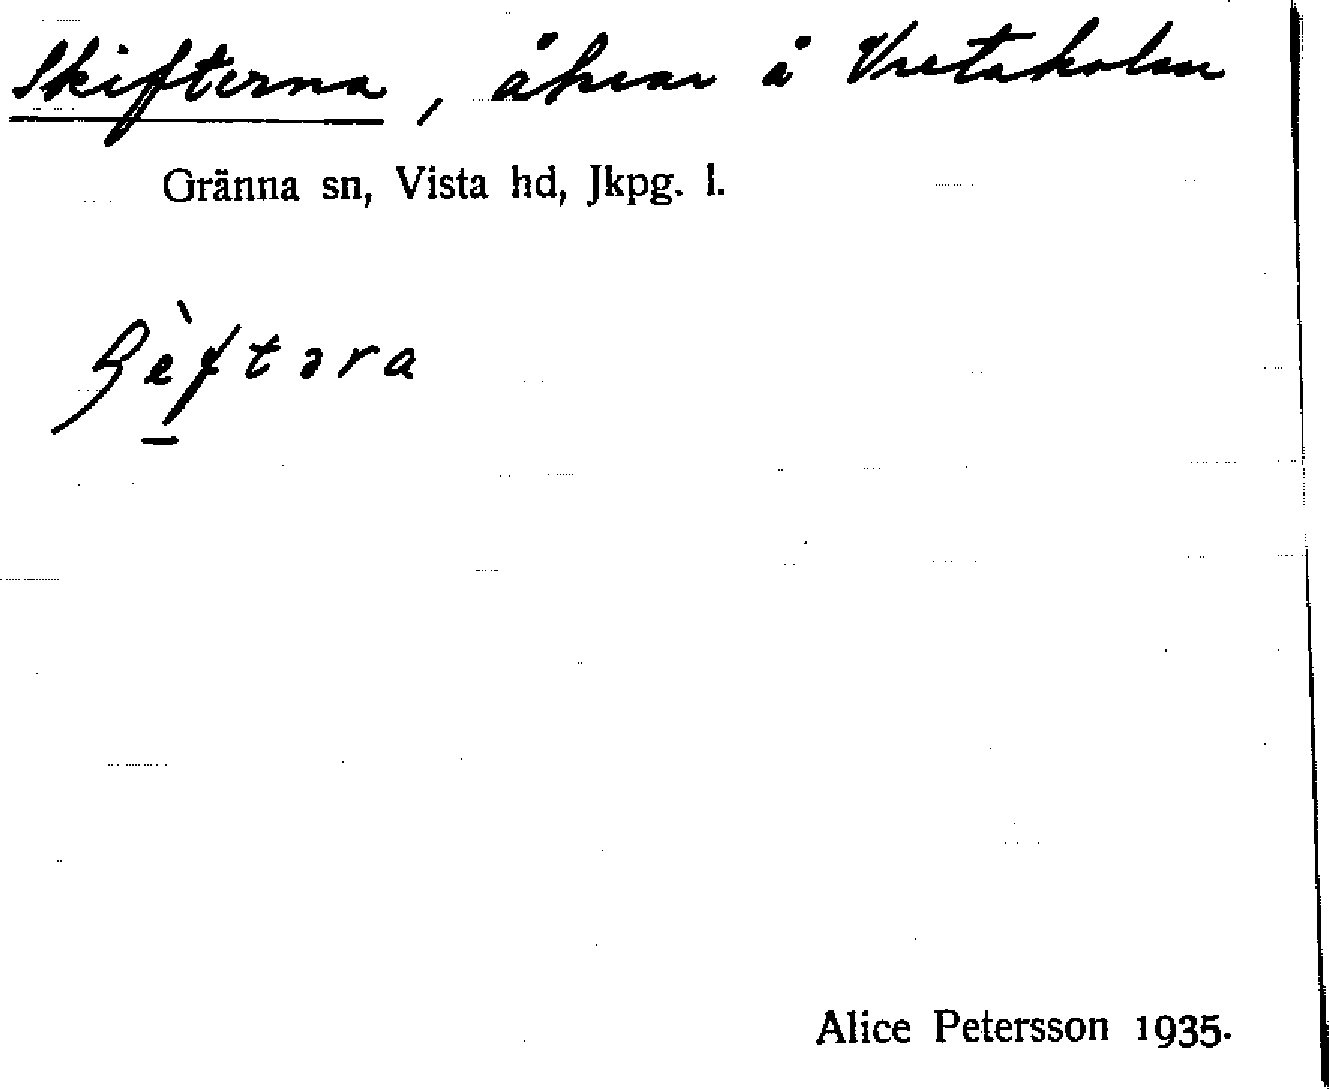 Skifterna, åkrar å Vretaholm
Gränna sn, Vista hd, Jkpg. l.
Alice Petersson 1935.